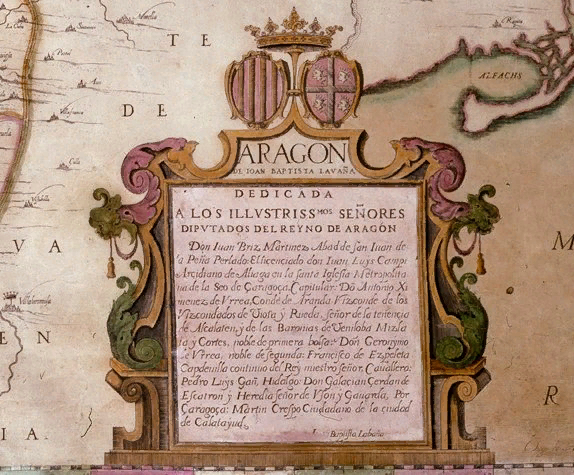 T E
D E
V A
E N
I A
M
R
ALFACHS
ARAGON
DE IOAN BAPTISTA LAVAÑA
DEDICADA
A LOS ILLVSTRISS.mos SEÑORES
DIPVTADOS DEL REYNO DE ARAGÓN
Don Iuan Briz Martinez Abad de San Iuan de
la Peña Perlado: El licenciado don Iuan Luys Campi
Arcidiano de Aliaga en la santa Iglesia Metropolita
na de la Seo de Çaragoça, Capitular: Dō Antonio Xi
menez de Vrrea, Conde de Aranda Vizconde de los
Vizcondados de Viota y Rueda, señor de la tenencia
de Alcalaten, y de las Baronias de Beniloba Mizla
ta y Cortes, noble de primera bolsa: Don Geronymo
de Vrrea, noble de segunda: Francisco de Ezpeleta
Capdevilla continuo del Rey nuestro señor, Cavallero:
Pedro Luys Gañ, Hidalgo: Don Galacian Çerdan de
Escatron y Heredia señor de Vson y Gavarda, Por
Çaragoça: Martin Crespo Ciudadano de la ciudad
de Calatayud.
Baptista Labaña